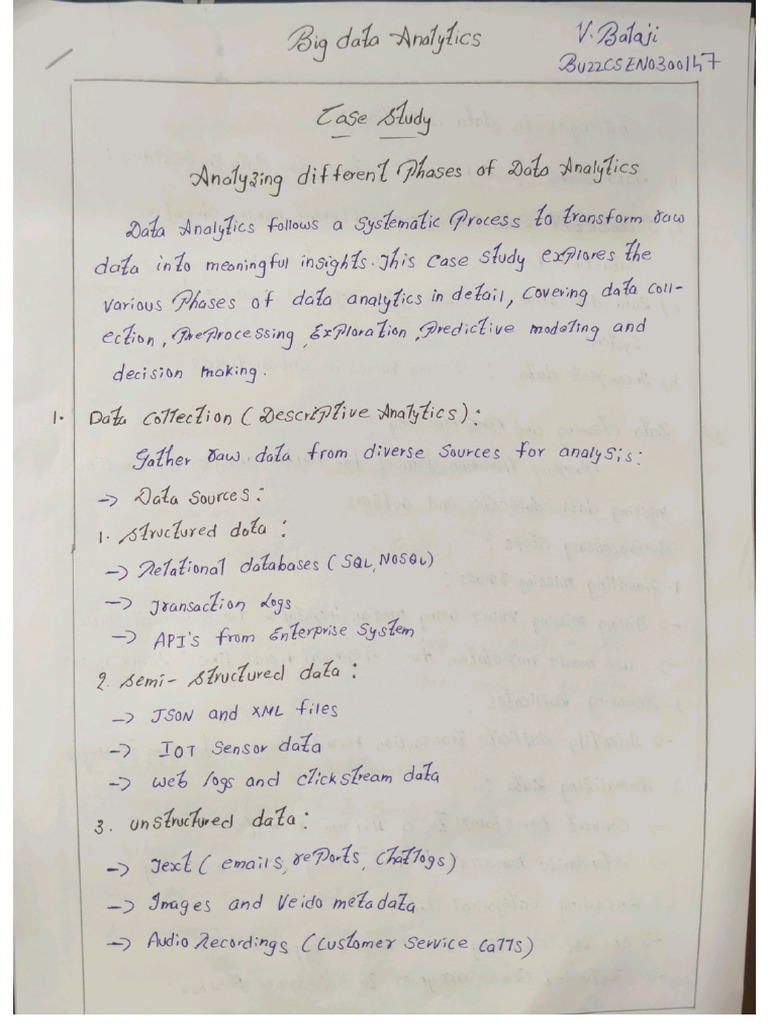 Big data Analytics
V. Balaji
BU22CSEN0300147
Case Study
Analyzing different Phases of Data Analytics
Data Analytics follows a systematic Process to transform raw
data into meaningful insights. This case study explores the
various Phases of data analytics in detail, covering data coll-
ection, PreProcessing, Exploration, Predictive modeling and
decision making.
1. Data Collection (Descriptive Analytics):
Gather raw data from diverse sources for analysis:
-> Data sources:
1. structured data:
-> Relational databases (SQL, NOSQL)
-> Transaction Logs
-> API's from Enterprise System
2. semi-structured data:
-> JSON and XML files
-> IOT Sensor data
-> web logs and clickstream data
3. unstructured data:
-> Text (emails, rePorts, chatlogs)
-> Images and Veido metadata
-> Audio Recordings (Customer service calls)